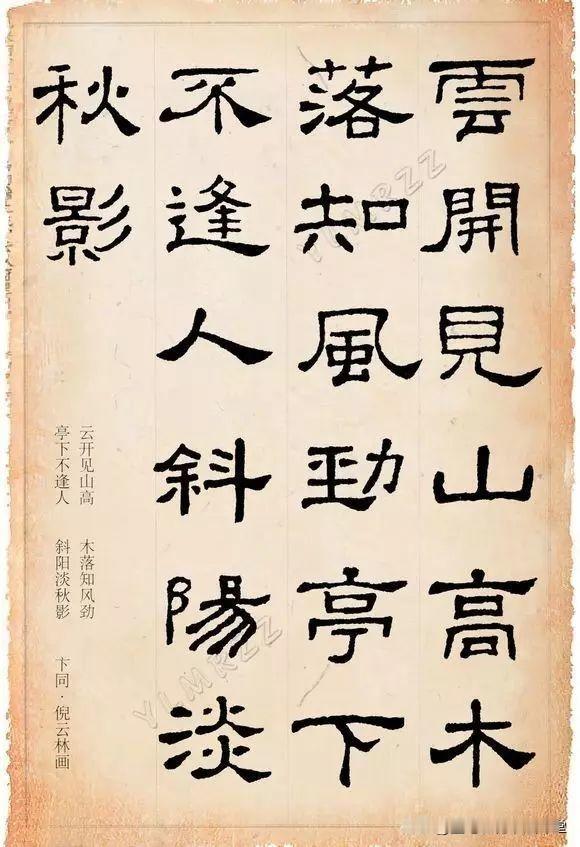 雲開見山高木
落知風勁亭下
不逢人斜陽淡
秋影
云开见山高　木落知风劲
亭下不逢人　斜阳淡秋影
卞同·倪云林画
YLMRZZ
YLMRZZ